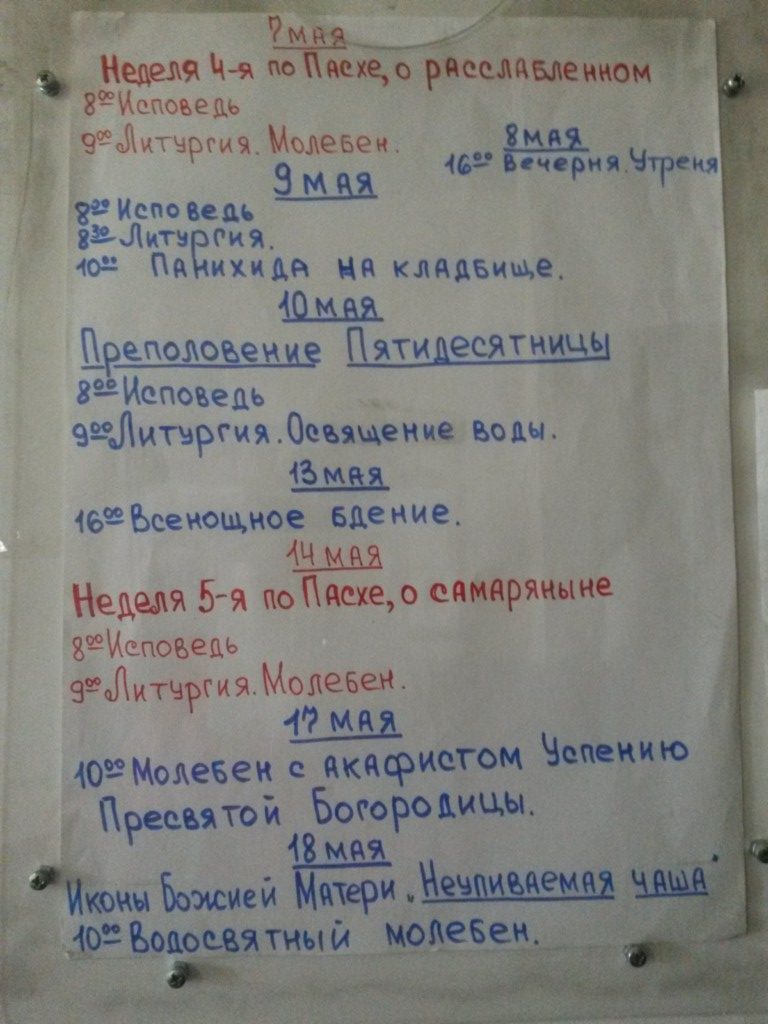 7 мая
Неделя 4-я по Пасхе, о расслабленном
8⁰⁰ Исповедь
9⁰⁰ Литургия. Молебен.
8 мая
16⁰⁰ Вечерня. Утреня
9 мая
8⁰⁰ Исповедь
8³⁰ Литургия.
10⁰⁰ Панихида на кладбище.
10 мая
Преполовение Пятидесятницы
8⁰⁰ Исповедь
9⁰⁰ Литургия. Освящение воды.
13 мая
16⁰⁰ Всенощное бдение.
14 мая
Неделя 5-я по Пасхе, о самаряныне
8⁰⁰ Исповедь
9⁰⁰ Литургия. Молебен.
17 мая
10⁰⁰ Молебен с акафистом Успению
Пресвятой Богородицы.
18 мая
Иконы Божией Матери „Неупиваемая чаша"
10⁰⁰ Водосвятный молебен.